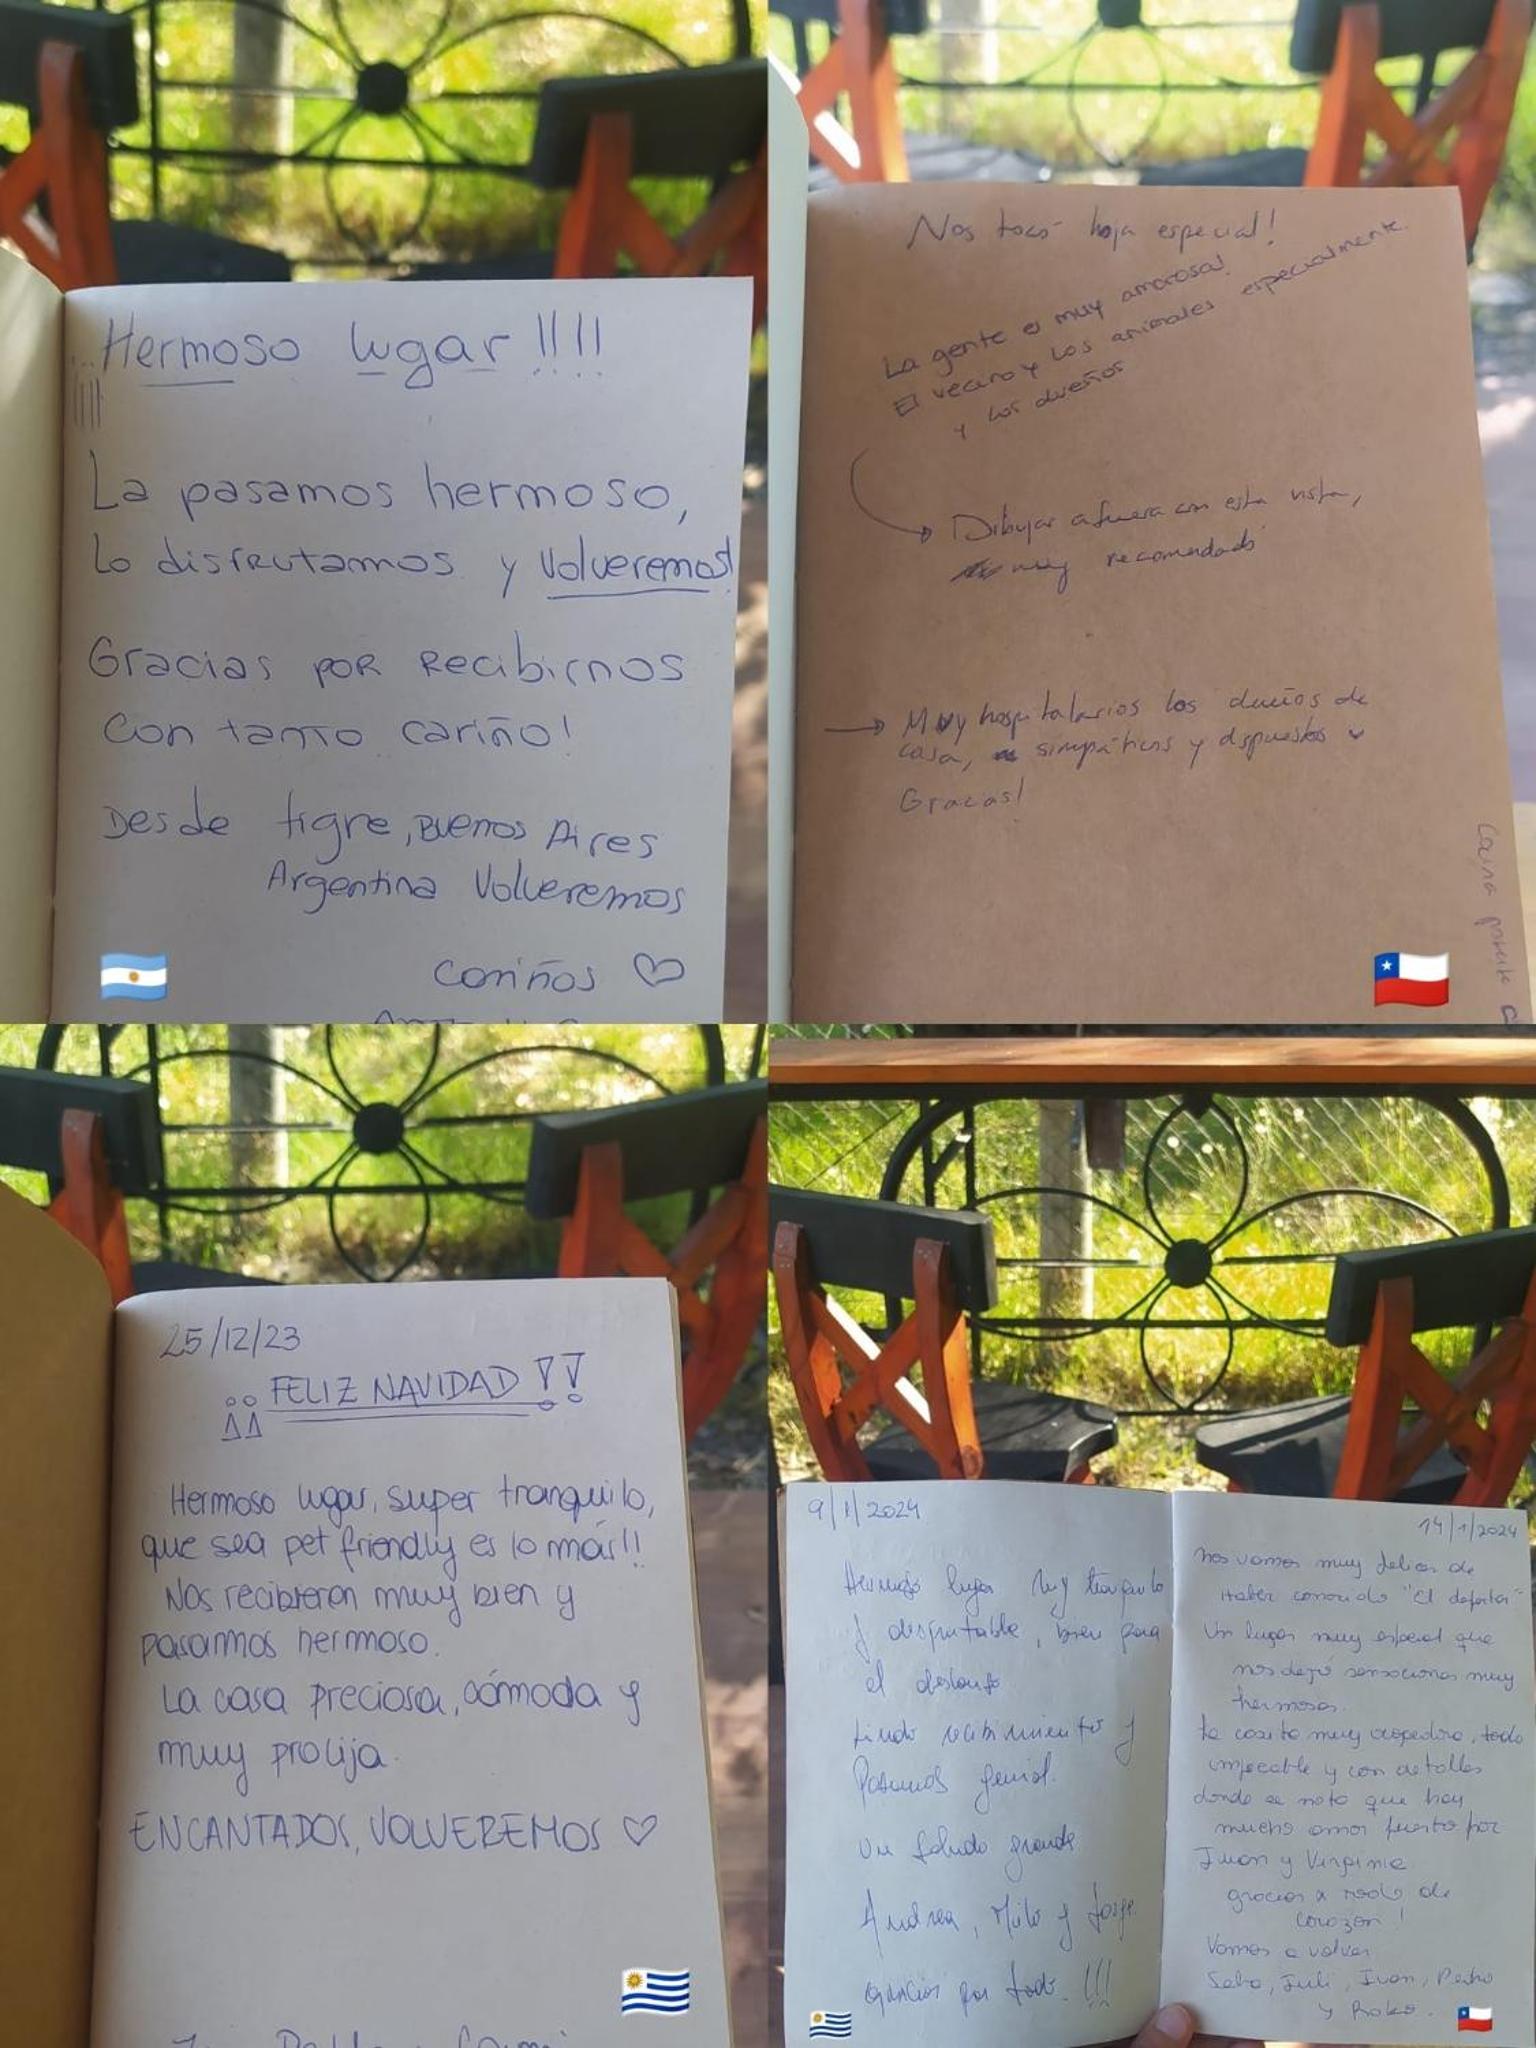 Hermoso lugar !!!!
La pasamos hermoso,
lo disfrutamos y volveremos!
Gracias por recibirnos
con tanto cariño!
Desde tigre, Buenos Aires
Argentina Volveremos
Cariños ♡
Nos tocó hoja especial!
La gente es muy amorosa!
El vecino y los animales especialmente.
y los dueños
→ Dibujar afuera con esta vista,
muy recomendado
→ Muy hospitalarios los dueños de
casa, simpáticos y dispuestos
Gracias!
25/12/23
¡¡ FELIZ NAVIDAD !!
Hermoso lugar, super tranquilo,
que sea pet friendly es lo más!!
Nos recibieron muy bien y
pasamos hermoso.
La casa preciosa, cómoda y
muy prolija.
ENCANTADOS, VOLVEREMOS ♡
9/1/2024
Hermoso lugar muy tranquilo
y disfrutable, bien para
el descanso
Lindo recibimiento y
Pasamos genial.
Un saludo grande
Andrea, Milo y Jorge.
gracias por todo. !!!
14/1/2024
Nos vamos muy felices de
Haber conocido "El
Un lugar muy especial que
nos dejó sensaciones muy
hermosas.
La casita muy acogedora, todo
impecable y con detalles
donde se nota que hay
mucho amor puesto por
Juan y Virginia
gracias x todo de
corazón!
Vamos a volver
Seba, Juli, Juan, Pedro
y Roko.